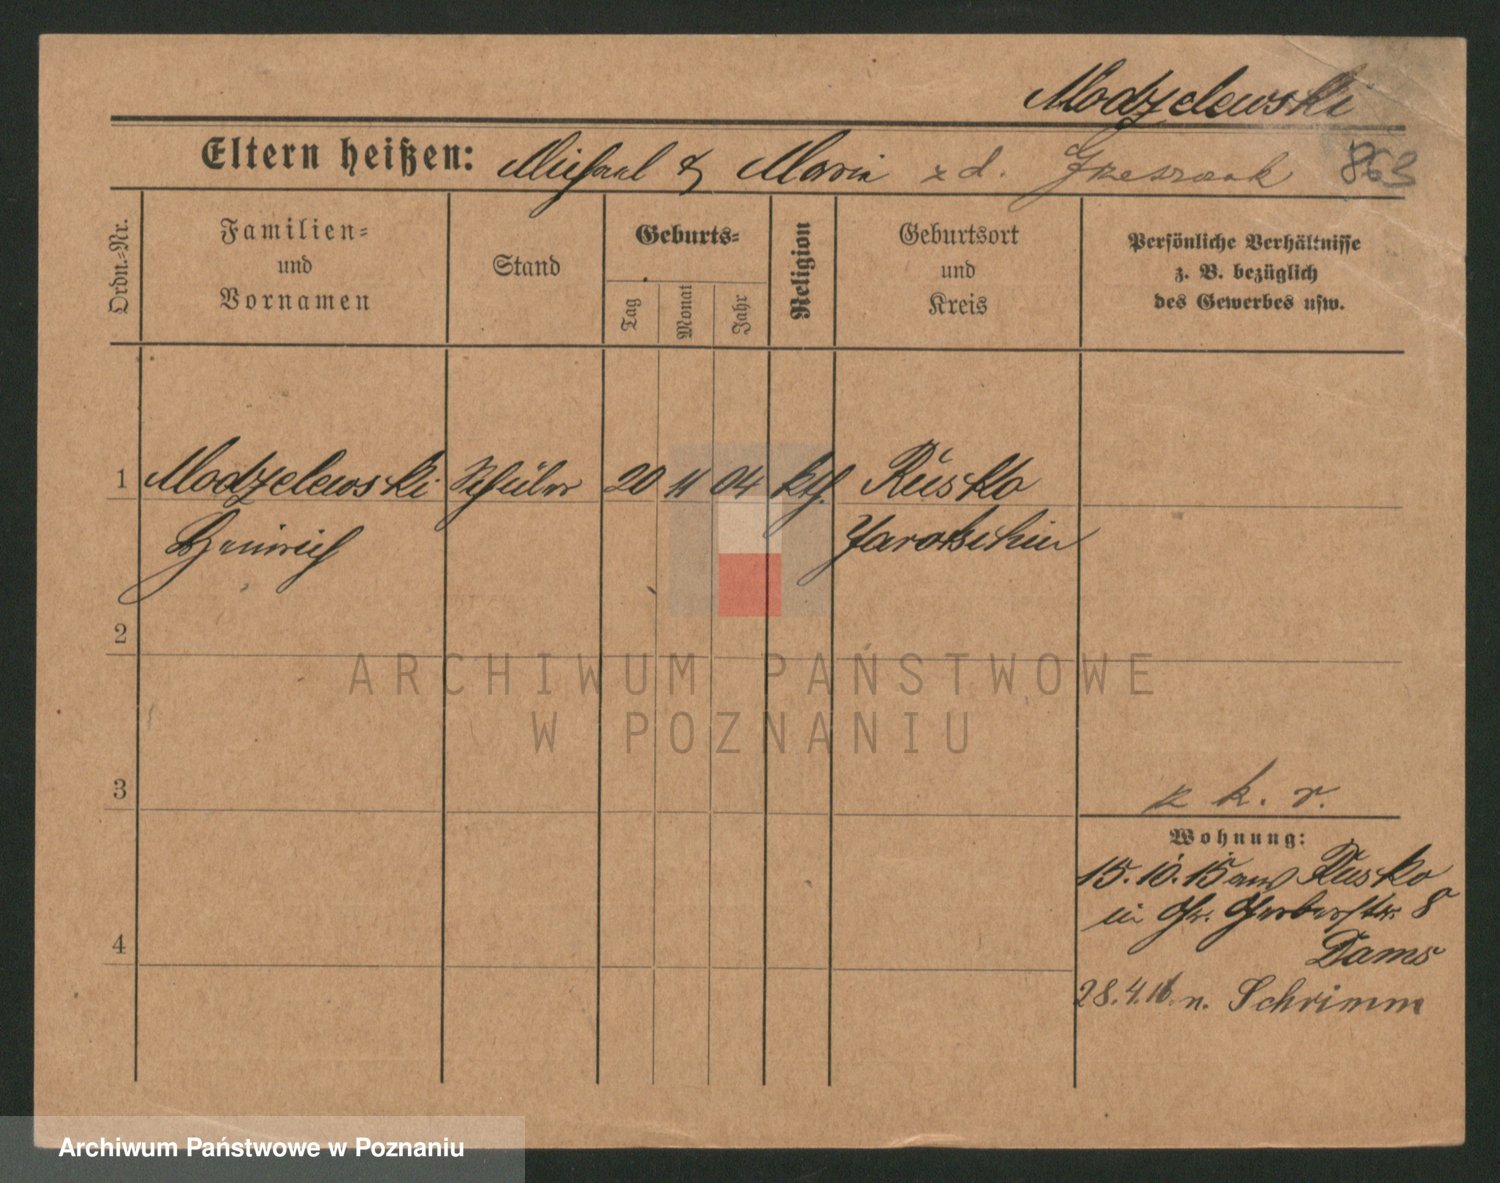 Modzelewski
Eltern heißen: Michael & Maria z d. Grzeszczak 863
Ordn.-Nr.
Familien-
und
Vornamen
Stand
Geburts-
Tag
Monat
Jahr
Religion
Geburtsort
und
Kreis
Persönliche Verhältnisse
z. B. bezüglich
des Gewerbes usw.
1 Modzelewski Schüler 20 11 04 kth. Rusko
Heinrich Jarotschin
2
ARCHIWUM PAŃSTWOWE
W POZNANIU
3
k. r.
Wohnung:
15.10.15 aus Rusko
in Gr. Gerberstr. 8
Dams
4
28.4.16 n. Schrimm
Archiwum Państwowe w Poznaniu